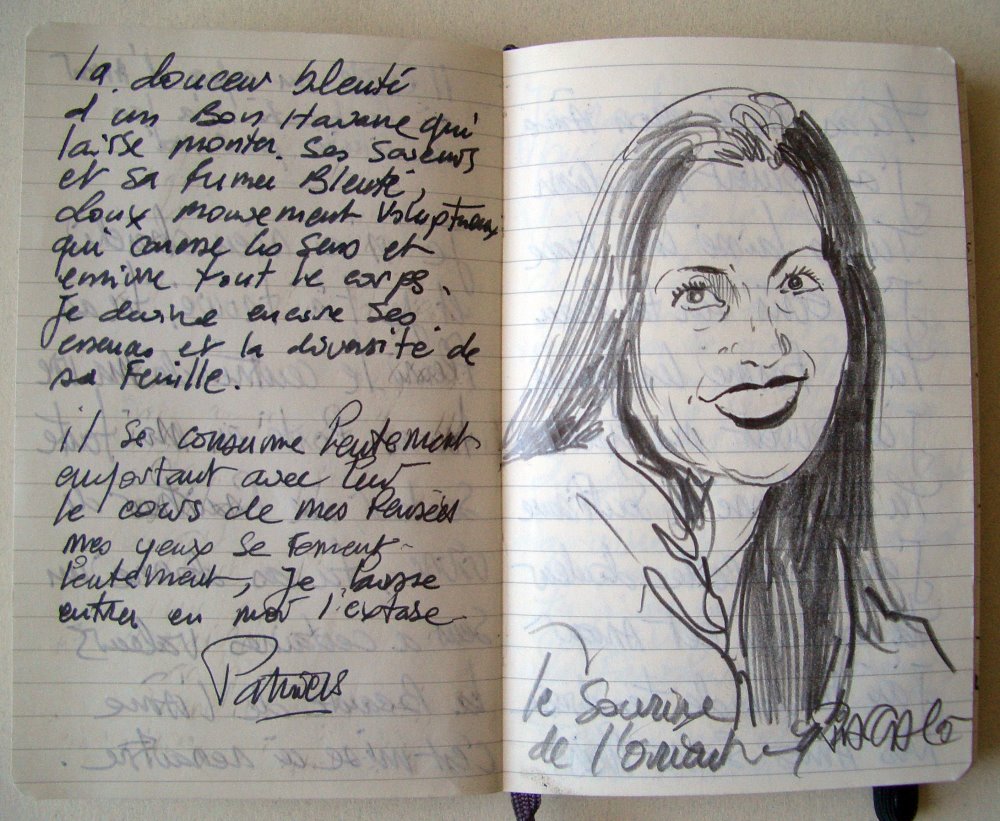 la douceur bleuté
d'un Bon Havane qui
laisse monter ses saveurs
et sa fumée Bleuté,
doux mouvement voluptueux
qui caresse les sens et
enivre tout le corps.
Je devine encore ses
essences et la diversité de
sa Feuille.
il se consume lentement
emportant avec lui
le cours de mes Pensées
mes yeux se ferment
lentement, je laisse
entrer en moi l'extase
le Sourire
de l'orient